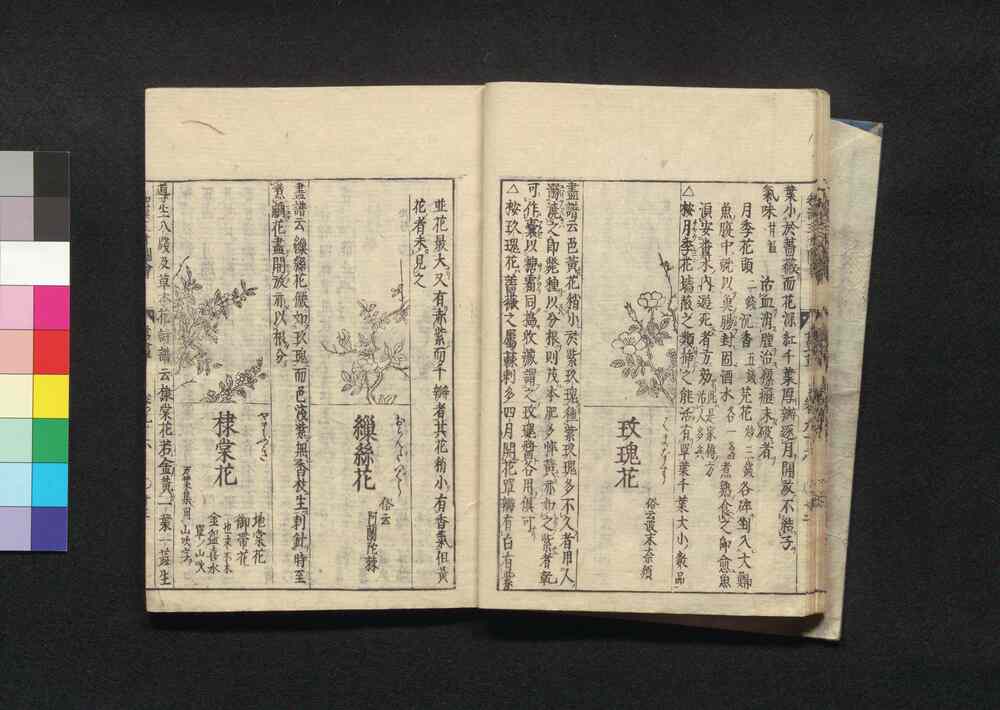 葉小於薔薇而花深紅千葉厚瓣逐月開放不結子
氣味 甘温 活血消腫治瘰癧未破者
月季花頭 二錢沉香五錢芫花炒三錢各碎剉入大鯽
魚腹中就以魚腸封固酒水各一盞煮熟食之即愈魚
須安糞水內遊死者方効 此是家傳方活人多矣
△按月季花墻薇之類插之能活有單葉千葉大小數品
玫瑰花
俗云波末奈須
畫譜云色黃花稍小於紫玫瑰種紫玫瑰多不久者用人
溺澆之即斃種以分根則茂本肥多悴黃亦如之紫者乾
可作囊以糖霜同搗收藏謂之玫瑰醬各用俱可
△按玫瑰花薔薇之屬蘇刺多四月開花單瓣有白有紫
單花最大又有赤紫而千瓣者其花稍小有香氣但黃
花者未見之
繅絲花
俗云
阿蘭陀棘
畫譜云繅絲花儼如玫瑰而色淺紫無香枝生刺針時至
煮繭花盡開放亦以根分
棣棠花
やまぶき
地棠花
御帶花
金盌喜水
萬葉集用山吹字
尊生八牋及草木花詩譜云棣棠花若金黃一葉一蕊生